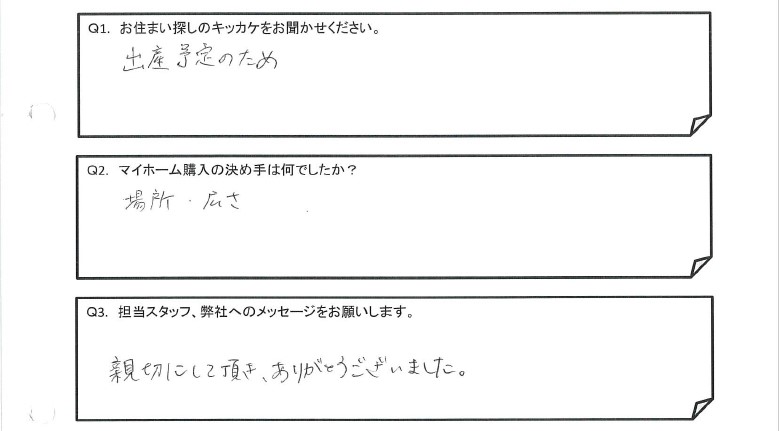 Q1. お住まい探しのキッカケをお聞かせください。
出産予定のため
Q2. マイホーム購入の決め手は何でしたか？
場所・広さ
Q3. 担当スタッフ、弊社へのメッセージをお願いします。
親切にして頂き、ありがとうございました。